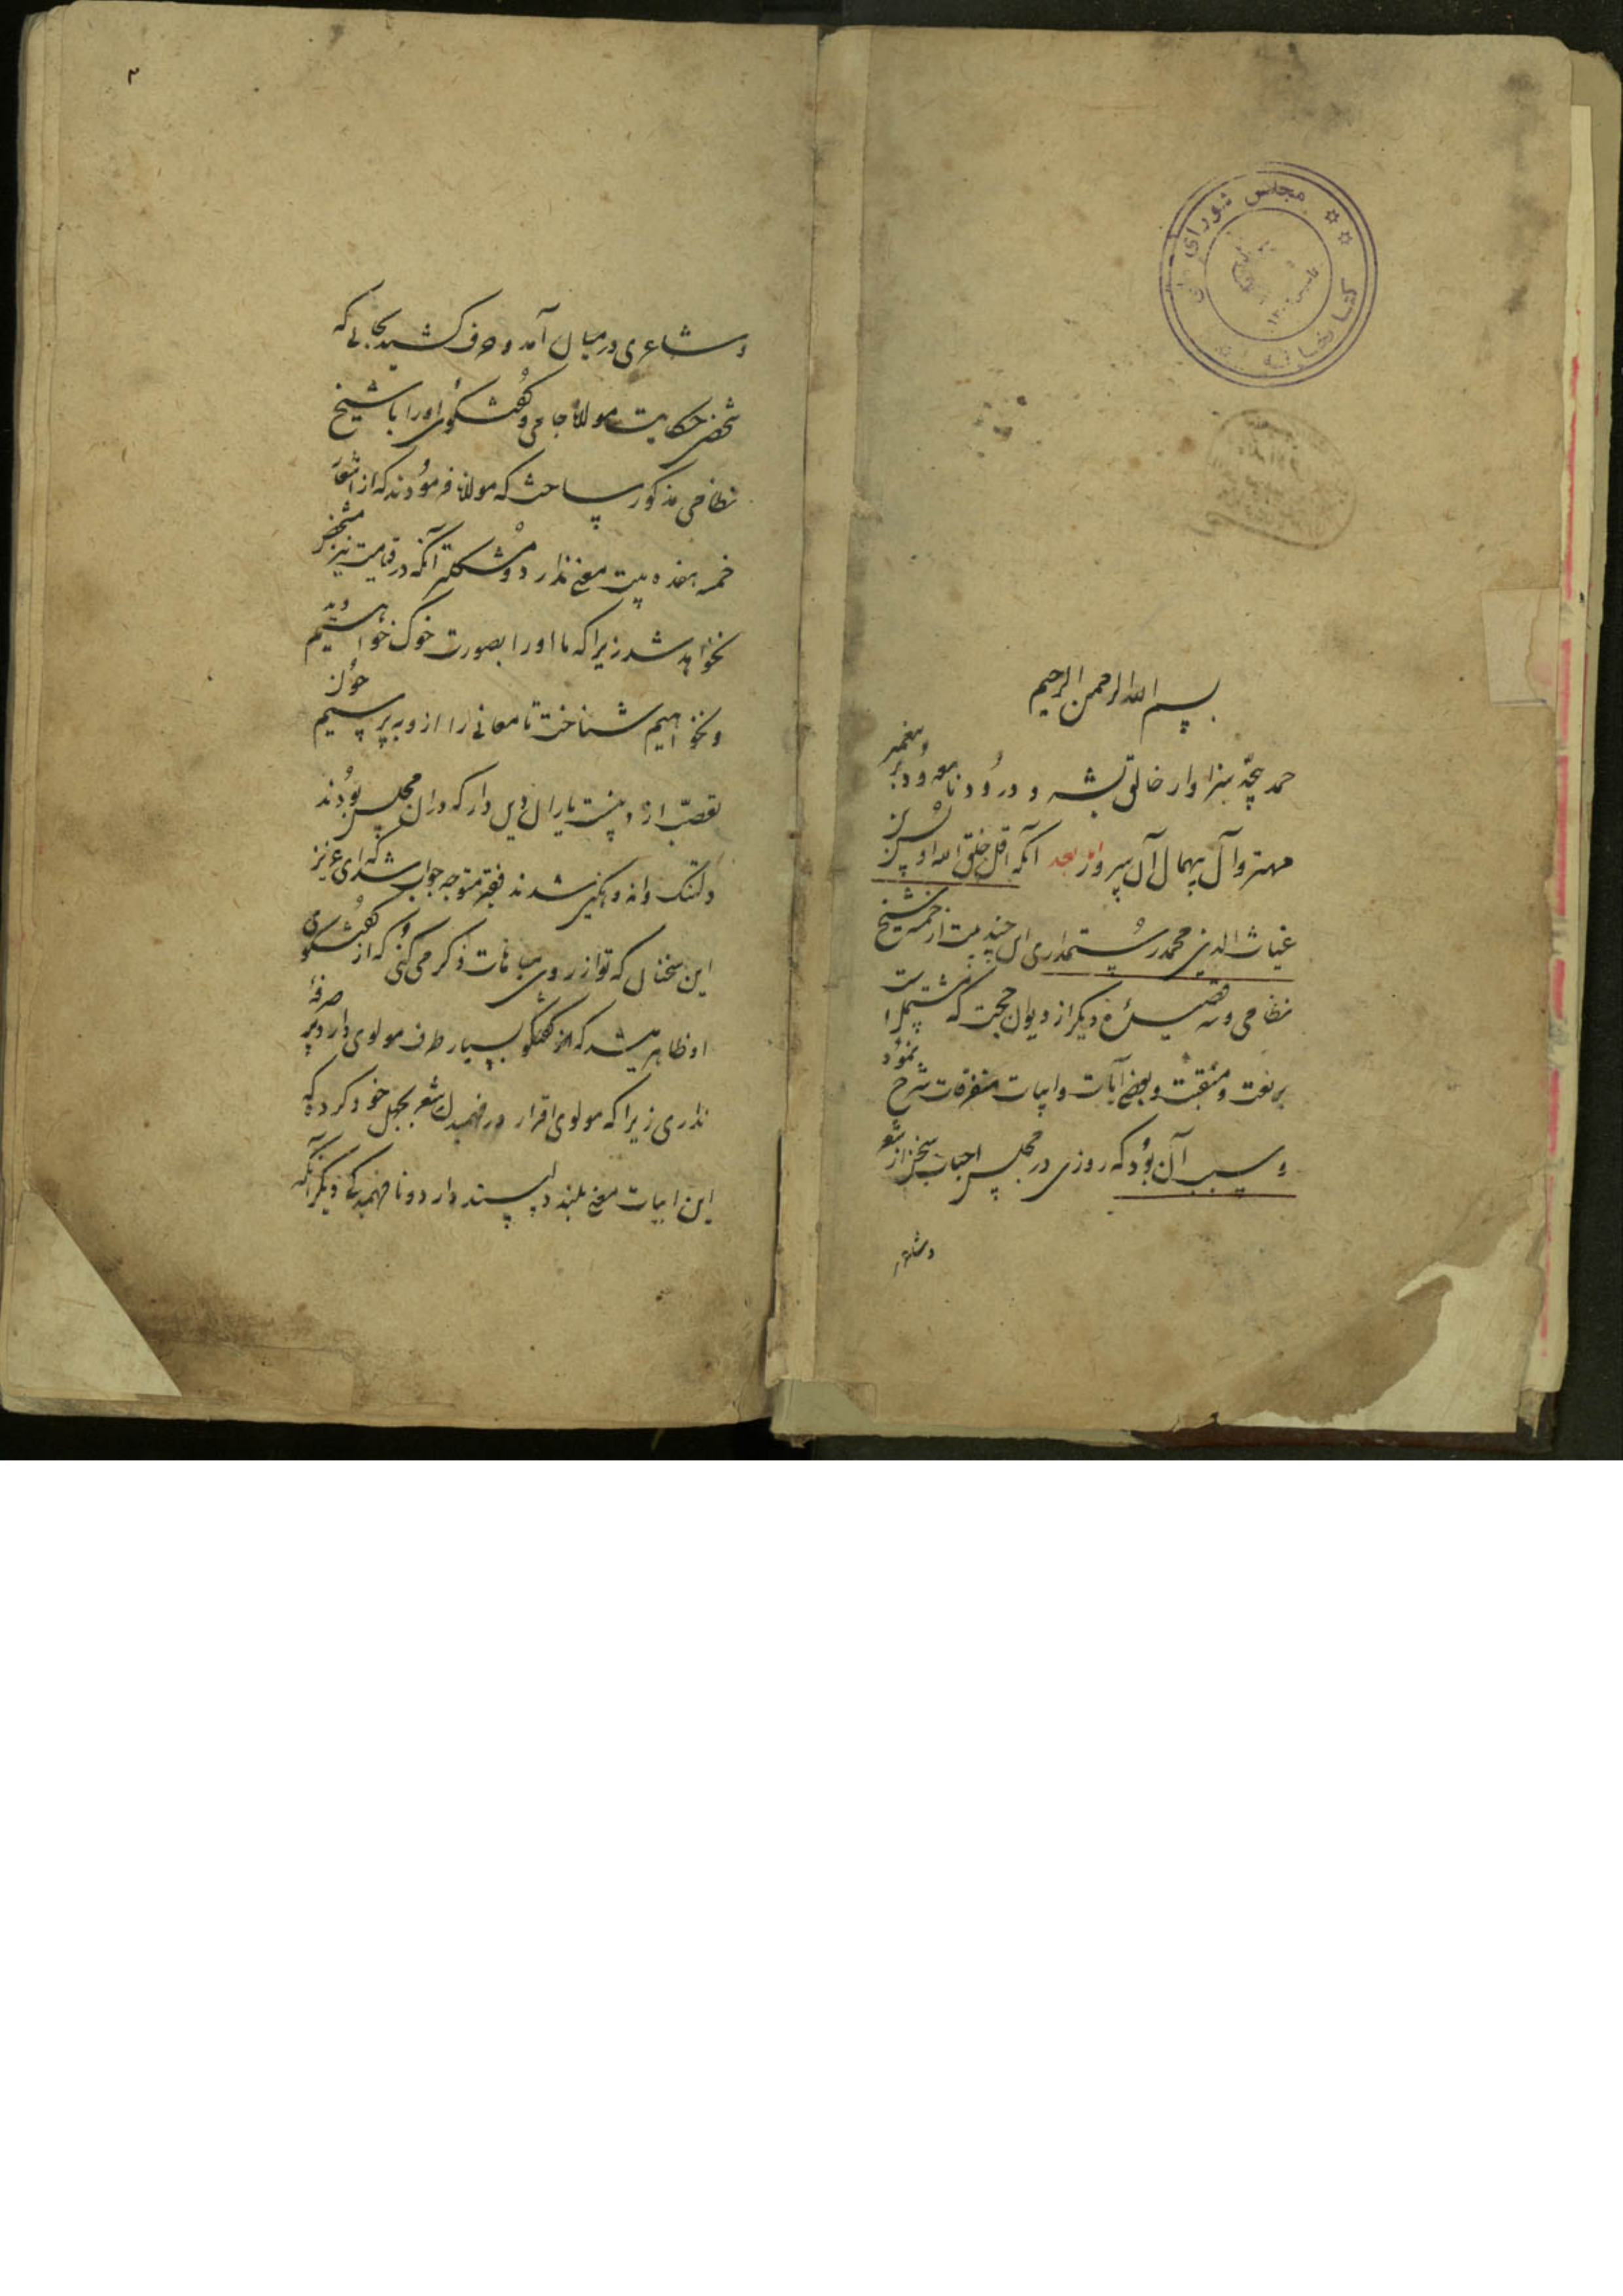 مجلس شورای
کتابخانه
بسم الله الرحمن الرحیم
حمد بیحد سزاوار خالق بشر و درود نامعدود بر پیغمبر
مهتر و آل بیهمال آن سرور بعد آنکه اقل خلق الله
غیاث الدین محمد رستمداری این چند بیت از خمسه شیخ
نظامی و سه قصیده دیگر از دیوان حجت که مشتمل است
بر نعت و منقبت و بعضی آیات و ابیات متفرقات شرح نمود
و سبب آن بود که روزی در مجلس احباب سخن از شعر
وشاعری
۲
و شاعری در میان آمد و حرف کشید بجائی که
شخصی حکایت مولانا جامی و گفتگوی او را با شیخ
نظامی مذکور ساخت که مولانا فرمودند که از اشعار
خمسه هفده بیت معنی ندارد و مشکلتر آنکه در قیامت نیز مشخص
نخواهد شد زیرا که ما او را بصورت خوک خواهیم دید
و نخواهیم شناخت تا معانی را از و بپرسیم چون
تعصب او یاران دین دار که در آن مجلس بودند
دلتنگ و اندوهگین شدند فقیر متوجه جواب شد که ای عزیز
این سخنان که تو از روی مباهات ذکر می کنی و که از گفتگوی
او ظاهر میشد که از گفتگو بسیار طرف مولوی دارد صرفهٔ
نداری زیرا که مولوی اقرار در فهمیدن شعر بجهل خود کرد که
این ابیات معنی بلند دلپسند دارد و نافهمیده دیگر آنکه